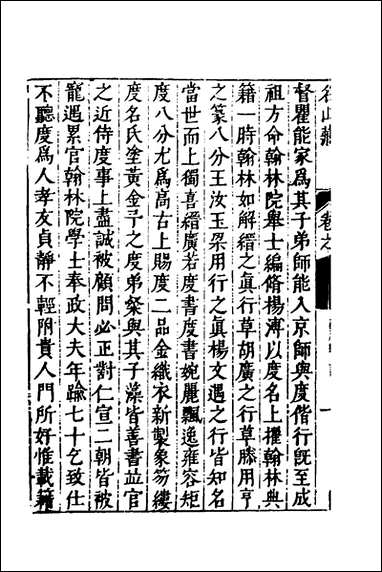 名山藏 卷之
督瞿能家為其子弟師能入京師與度偕行旣至成
祖方命翰林院舉士編脩楊溥以度名上擢翰林典
籍一時翰林如解縉之眞行草胡廣之行草滕用亨
之篆八分王汝玉梁用行之眞楊文遇之行皆知名
當世而上獨喜縉廣若度書度書婉麗飄逸雍容矩
度八分尤為高古上賜度二品金織衣新製象笏縷
度名氏塗黃金予之度弟粲與其子藻皆善書竝官
之近侍度事上盡誠被顧問必正對仁宣二朝皆被
寵遇累官翰林院學士奉政大夫年踰七十乞致仕
不聽度為人孝友貞靜不輕附貴人門所好惟載籍